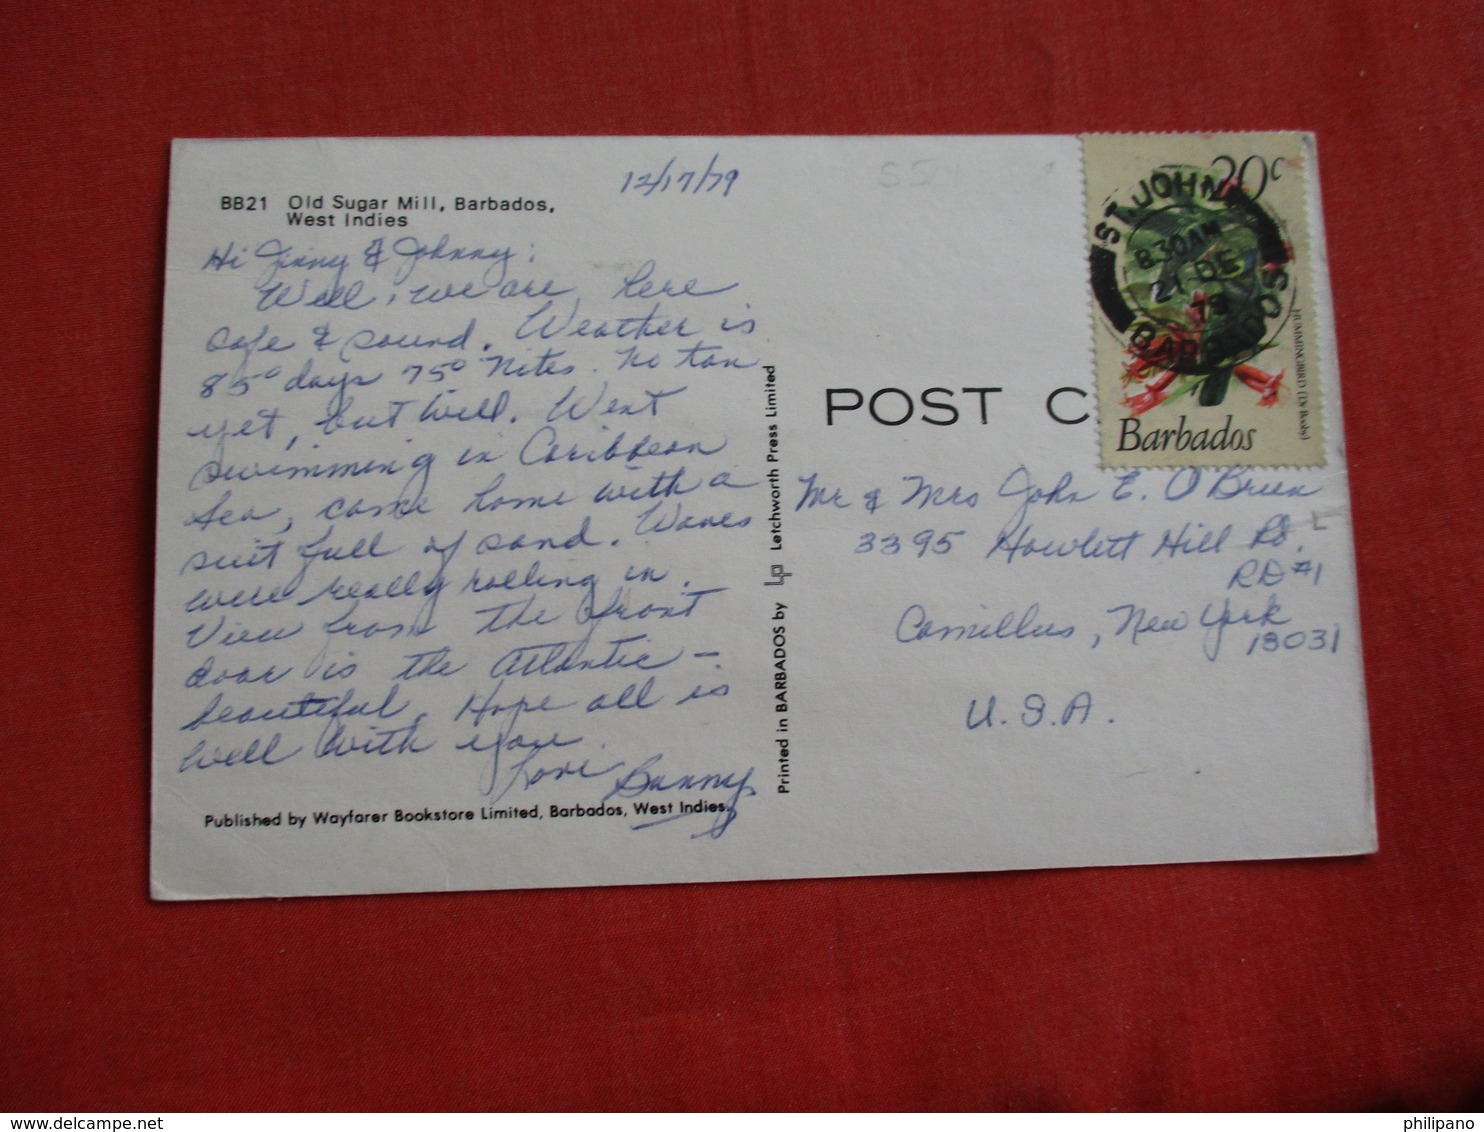 12/17/79
BB21 Old Sugar Mill, Barbados,
West Indies
Hi Jinny & Johnny;
Well, we are here
safe & sound. Weather is
85° days 75° Nites. No tan
yet, but will. Went
swimming in Caribbean
Sea, came home with a
suit full of sand. Waves
were really rolling in.
View from the front
door is the Atlantic –
beautiful. Hope all is
well with you.
Love Bunny
Published by Wayfarer Bookstore Limited, Barbados, West Indies.
Printed in BARBADOS by LP Letchworth Press Limited
POST C
20c
ST. JOHN
8.30AM
21 DE
79
BARBADOS
HUMMINGBIRD (Dr Booby)
Barbados
Mr & Mrs John E. O'Brien
3395 Howlett Hill Rd.
RD #1
Camillus, New York
13031
U.S.A.
philipano